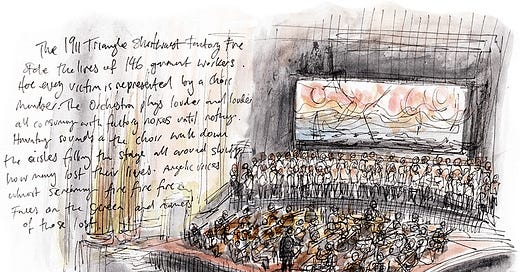 The 1911 Triangle Shirtwaist Factory Fire
stole the lives of 146 garment workers.
every victim is represented by a choir
member. The Orchestra plays louder and louder
all consuming with factory noises until nothing.
Haunting sounds as the choir walk down
the aisles filling the stage all around showing
how many lost their lives. Angelic voices
almost screaming fire fire fire
Faces on the screen and names
of those lost